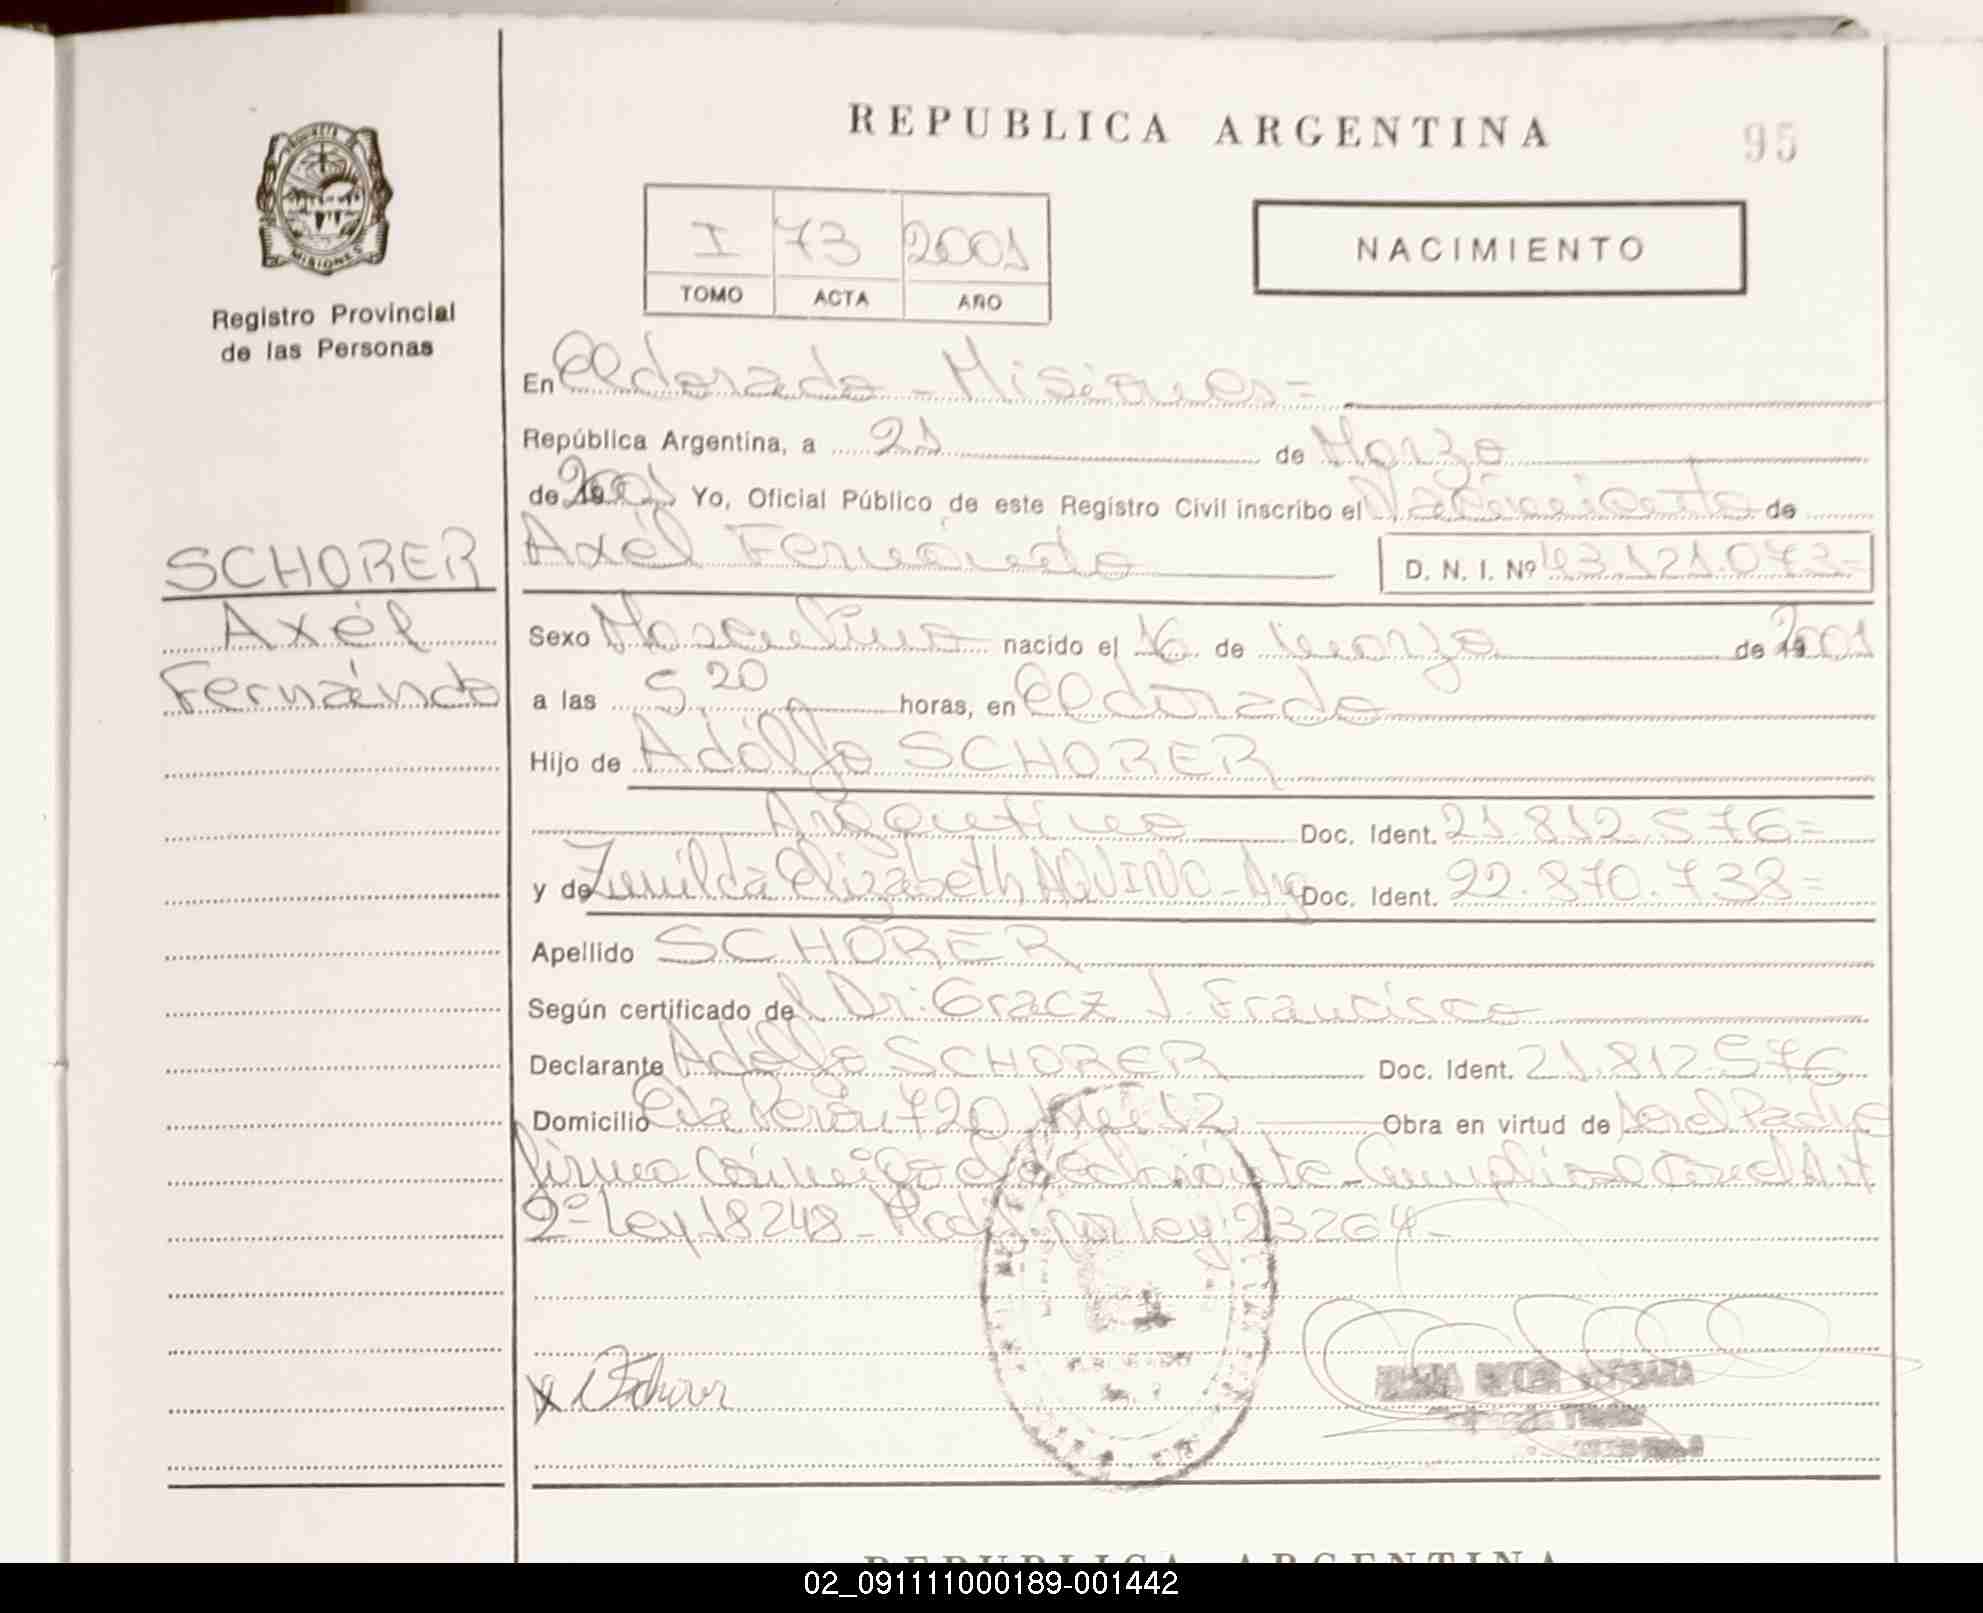 REPUBLICA ARGENTINA
95
PROVINCIA
MISIONES
Registro Provincial
de las Personas
I 73 2001
TOMO ACTA AÑO
NACIMIENTO
En Eldorado - Misiones =
República Argentina, a 21 de Marzo
de 2001 Yo, Oficial Público de este Registro Civil inscribo el Nacimiento de
SCHORER
Axél
Fernándo
Axél Fernándo D. N. I. Nº 43.121.073-
Sexo Masculino nacido el 16 de marzo de 2001
a las 5,20 horas, en Eldorado
Hijo de Adólfo SCHORER
Argentino Doc. Ident. 21.812.576=
y de Zunilda Elizabeth AQUINO - Arg Doc. Ident. 22.870.738=
Apellido SCHORER
Según certificado del Dr: Gracz J. Francisco
Declarante Adólfo SCHORER Doc. Ident. 21.812.576
Domicilio Eva Perón 720 12 Obra en virtud de Ser el Padre
firma Conmigo el declarante - Con el Art
2º Ley 18248 - Modif. por ley 23264 -
REPUBLICA ARGENTINA
02_091111000189-001442